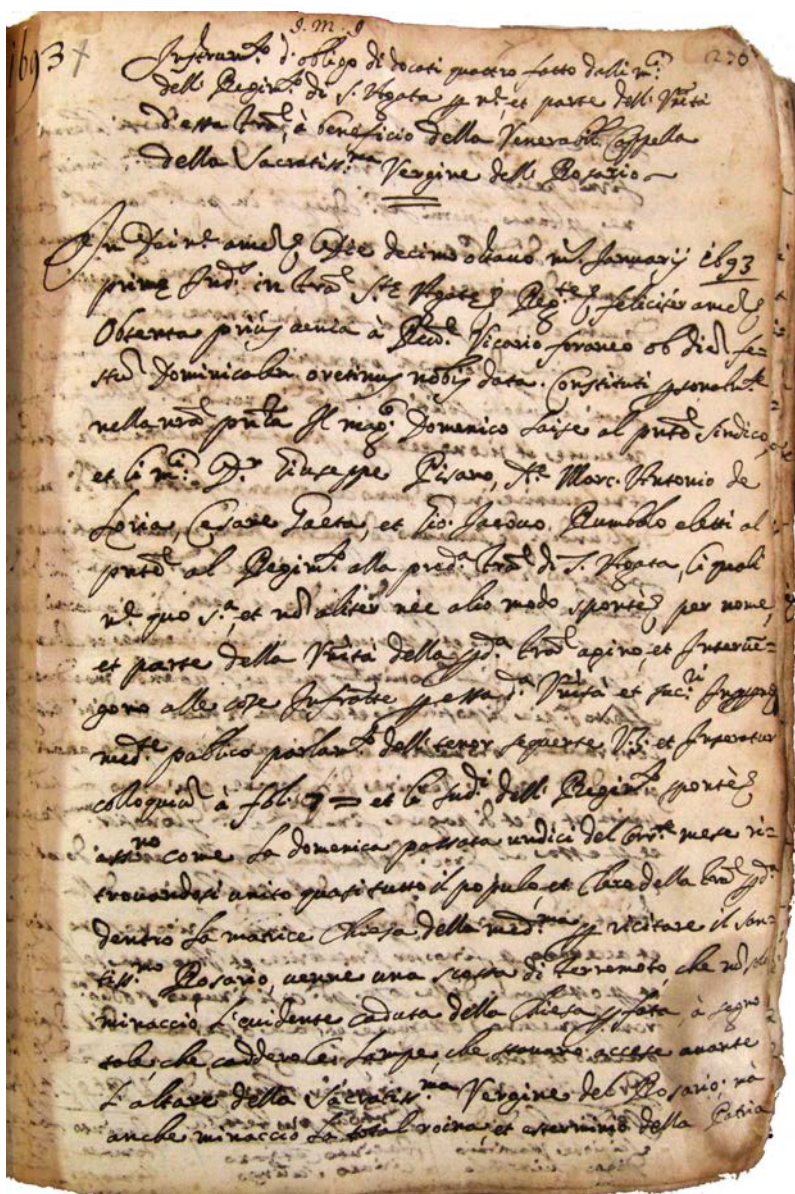 J. M. J
1693 276
Instrum.to d'obligo di docati quattro fatto dalli m.ci
dell Regim.to di S. Agata p n.e et parte dell Un.ità
d'essa Tra à beneficio della Venerabil Cappella
della Sacratiss.ma Vergine dell Rosario
In Dei n.e amen Die decimo octavo m.s Januarij 1693
prime Ind. in Tra S.te Agate Reg.te feliciter amen
Obtenta prius venia à Rev. Vicario foraneo ob diem fe=
stum Dominicalem nobis data. Constituti psonalm.te
nella nra pntia Il mag.co Domenico Laise al pnte Sindico,
et li m.ci D.r Giuseppe Pisano, Marc'Antonio de
Loria, Cesare Gaeta, et Gio: Jacovo Rumbolo eletti al
pnte al Regim.to alla pred.a Tra di S. Agata, li quali
et nō aliter nec alio modo sponte per nome,
et parte della Un.ità della pd.a Tra et Interuē=
gono alle cose Infratte p essa d.a Un.ità et suc.ri
med.te publico parlam.to dell tenor seguente V.z et Inseratur
colloquiū à fol: 7 = et li sud.i dell Regim.to sponte
come la domenica passata undici del corr.te mese ri=
trovandosi unito quasi tutto il populo, et Clero della Tra pd.a
dentro la matrice Chiesa della med.ma p ricitare il San=
tiss.mo Rosario, venne una scossa di terremoto, che nō solo
minacciò l'evidente caduta della Chiesa pfata, à segno
tale, che caddero le lampe, che stavano accese avante
l'altare della Sacratiss.ma Vergine del Rosario; mà
anche minacciò la total roina, et esterminio della Patria